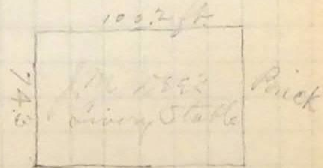 100.2 ft
74.3
Livery Stable
Brick